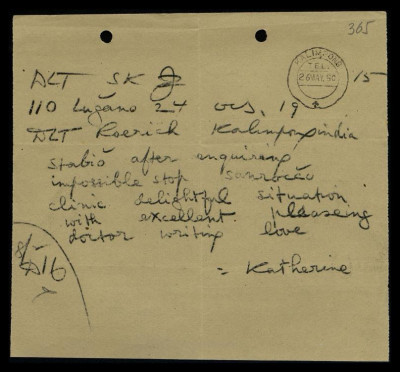 365
KALIMPONG
ALT SK
15
110 Lugano 24 oct, 19
DLT Roerich Kalimpongindia
stabio after enquireng
impossible stop sanrocco
clinic delightful situation
with excellent pleaseing
doctor writing love
= Katherine
A16